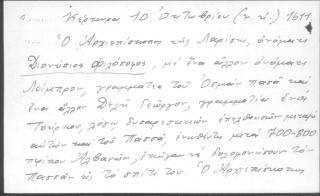 Κέρκυρα 10 Ὀκτωβρίου (ν. ἡ.) 1611
Ὁ Ἀρχιεπίσκοπος τῆς Λαρίσης, ὀνόματι
Διονύσιος Φιλόσοφος, μέ ἕνα ἄλλον ὀνόματι
Λάμπρον, γραμματέα τοῦ Ὀσμάν πασᾶ καί
ἕνα ἄλλον Δελῆ Γεῶργον, γραμματέα ἑνός
Τούρκου, λόγω δυσαρεσκειῶν ἐπελθουσῶν μεταξύ
αὐτῶν καί τοῦ Πασσᾶ, ἑνωθέντες μετά 700-800
Ἀλβανῶν, ἐπῆγαν νά δολοφονήσουν τόν
Πασσᾶν εἰς τό σπίτι του. Ὁ Ἀρχιεπίσκοπος